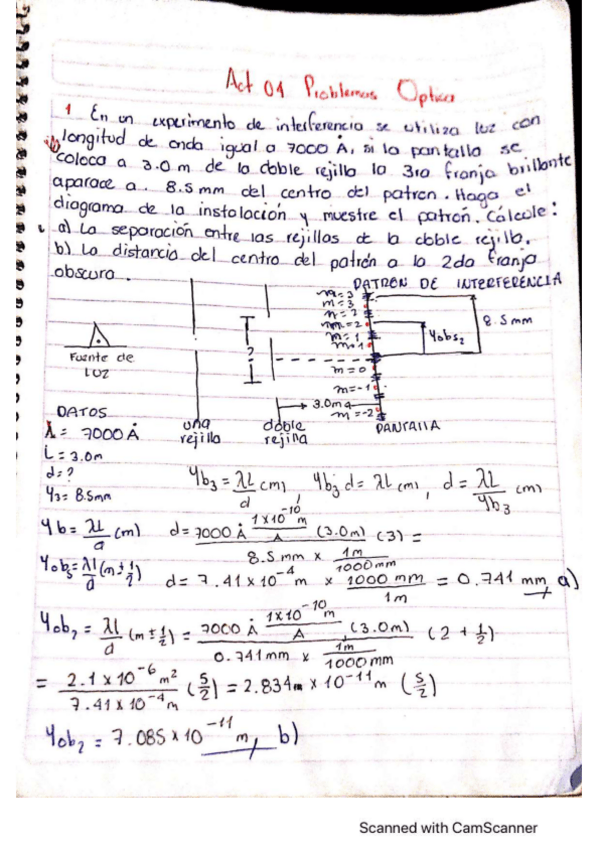 Act 01 Problemas Optica
1 En un experimento de interferencia se utiliza luz con
longitud de onda igual a 7000 Å, si la pantalla se
coloca a 3.0 m de la doble rejilla la 3ra franja brillante
aparace a. 8.5 mm del centro del patron. Haga el
diagrama de la instalación y muestre el patrón. Cálcule:
a) La separación entre las rejillas de la doble rejilla.
b) La distancia del centro del patrón a la 2da franja
obscura.
PATRÓN DE INTERFERENCIA
m=3
m=3
m=2
m=2
m=1
m=1
m=0
m=-1
m=-2
8.5mm
Yobs2
?
3.0m
Fuente de
LUZ
una
rejilla
doble
rejilla
PANTALLA
DATOS
λ= 7000 Å
L= 3.0m
d=?
Y3= 8.5mm
Yb3 = λL/d (m), Yb3 d = λL (m), d = λL/Yb3 (m)
Yb = λL/d (m) d = 7000 Å 1x10^-10 m/Å (3.0m) (3) / 8.5 mm x 1m/1000mm =
Yobs = λl/d (m ± 1/2) d = 7.41 x 10^-4 m x 1000 mm/1m = 0.741 mm a)
Yob2 = λl/d (m ± 1/2) = 7000 Å 1x10^-10 m/Å (3.0m) / 0.741mm x 1m/1000mm (2 + 1/2)
= 2.1 x 10^-6 m² / 7.41 x 10^-4 m (5/2) = 2.834m x 10^-11 m (5/2)
Yob2 = 7.085 x 10^-11 m, b)
Scanned with CamScanner